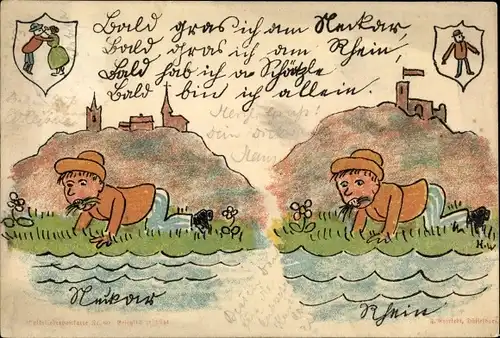 Bald gras ich am Neckar,
Bald gras ich am Rhein,
Bald hab ich a Schätzle
Bald bin ich allein.
H.W
Neckar
Rhein